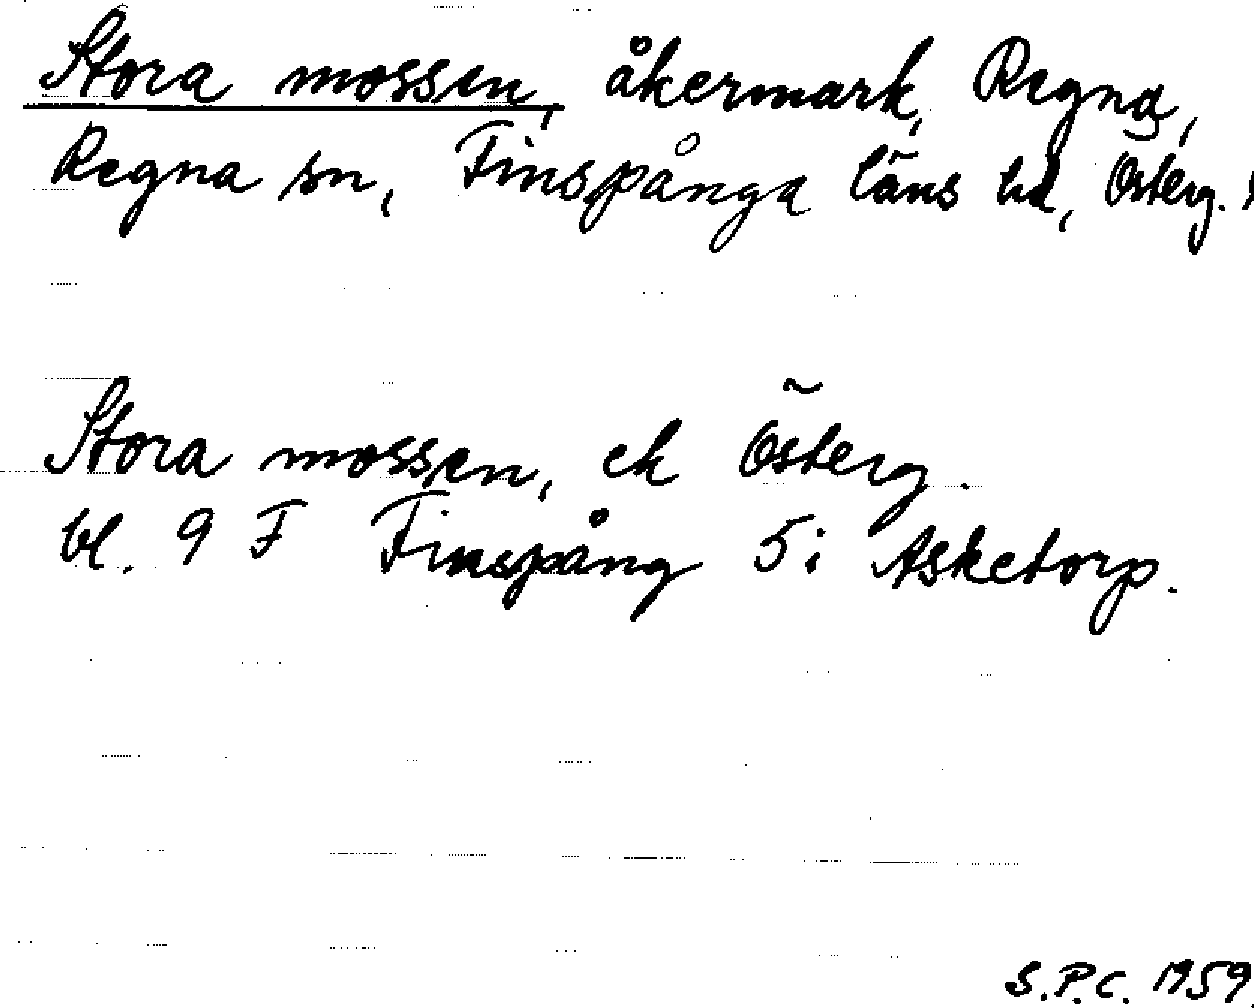 Stora mossen, åkermark, Regna,
Regna sn, Finspånga läns hd, Österg.
Stora mossen, ek Österg.
bl. 9 F Finspång 5 i Asketorp.
S.P.C. 1959